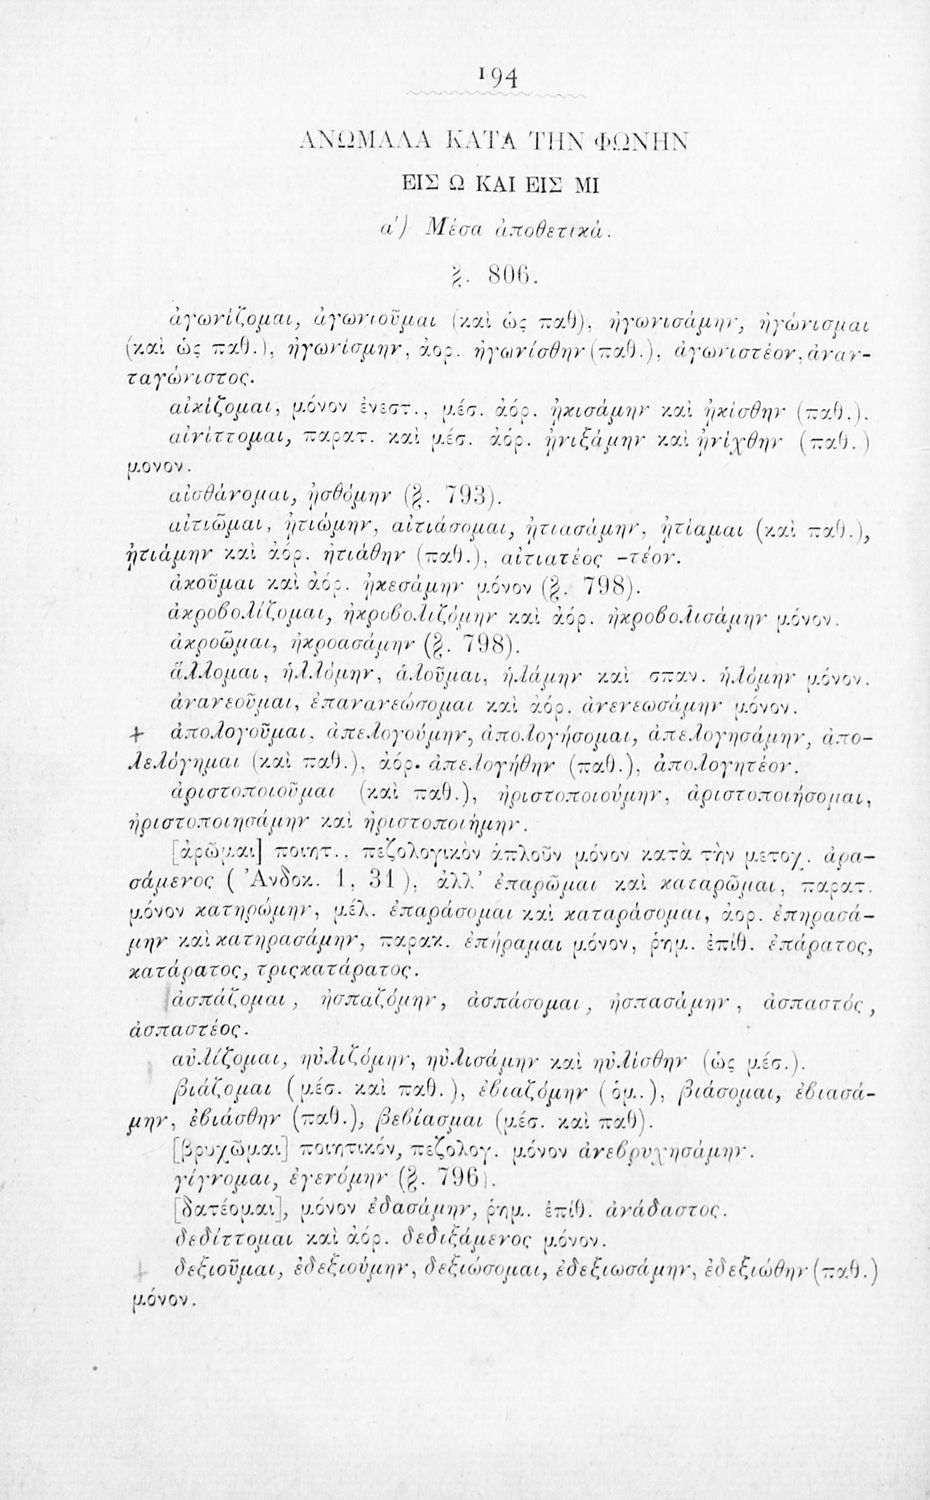 194
ΑΝΩΜΑΛΑ ΚΑΤΑ ΤΗΝ ΦΩΝΗΝ
ΕΙΣ Ω ΚΑΙ ΕΙΣ ΜΙ
α') Μέσα ἀποθετικά.
§. 806.
ἀγωνίζομαι, ἀγωνιοῦμαι (καὶ ὡς παθ), ἠγωνισάμην, ἠγώνισμαι
(καὶ ὡς παθ.), ἠγωνίσμην, ἀορ. ἠγωνίσθην (παθ.), ἀγωνιστέον, ἀναν-
ταγώνιστος.
αἰκίζομαι, μόνον ἐνεστ., μέσ. ἀόρ. ᾐκισάμην καὶ ᾐκίσθην (παθ.).
αἰνίττομαι, παρατ. καὶ μέσ. ἀόρ. ᾐνιξάμην καὶ ᾐνίχθην (παθ.)
μονον.
αἰσθάνομαι, ᾐσθόμην (§. 793).
αἰτιῶμαι, ᾐτιώμην, αἰτιάσομαι, ᾐτιασάμην, ᾐτίαμαι (καὶ παθ.),
ᾐτιάμην καὶ ἀόρ. ᾐτιάθην (παθ.), αἰτιατέος -τέον.
ἀκοῦμαι καὶ ἀόρ. ἠκεσάμην μόνον (§. 798).
ἀκροβολίζομαι, ἠκροβολιζόμην καὶ ἀόρ. ἠκροβολισάμην μόνον.
ἀκροῶμαι, ἠκροασάμην (§. 798).
ἅλλομαι, ἡλλόμην, ἁλοῦμαι, ἡλάμην καὶ σπαν. ἡλόμην μόνον.
ἀνανεοῦμαι, ἐπανανεώσομαι καὶ ἀόρ. ἀνενεωσάμην μόνον.
+ ἀπολογοῦμαι, ἀπελογούμην, ἀπολογήσομαι, ἀπελογησάμην, ἀπο-
λελόγημαι (καὶ παθ.), ἀόρ. ἀπελογήθην (παθ.), ἀπολογητέον.
ἀριστοποιοῦμαι (καὶ παθ.), ἠριστοποιούμην, ἀριστοποιήσομαι,
ἠριστοποιησάμην καὶ ἠριστοποιήμην.
[ἀρῶμαι] ποιητ., πεζολογικὸν ἁπλοῦν μόνον κατὰ τὴν μετοχ. ἀρα-
σάμενος (Ἀνδοκ. 1, 31), ἀλλ' ἐπαρῶμαι καὶ καταρῶμαι, παρατ.
μόνον κατηρώμην, μέλ. ἐπαράσομαι καὶ καταράσομαι, ἀορ. ἐπηρασά-
μην καὶ κατηρασάμην, παρακ. ἐπήραμαι μόνον, ῥημ. ἐπίθ. ἐπάρατος,
κατάρατος, τρισκατάρατος.
ἀσπάζομαι, ἠσπαζόμην, ἀσπάσομαι, ἠσπασάμην, ἀσπαστός,
ἀσπαστέος.
αὐλίζομαι, ηὐλιζόμην, ηὐλισάμην καὶ ηὐλίσθην (ὡς μέσ.).
βιάζομαι (μέσ. καὶ παθ.), ἐβιαζόμην (ὁμ.), βιάσομαι, ἐβιασά-
μην, ἐβιάσθην (παθ.), βεβίασμαι (μέσ. καὶ παθ).
[βρυχῶμαι] ποιητικόν, πεζολογ. μόνον ἀνεβρυχησάμην.
γίγνομαι, ἐγενόμην (§. 796).
[δατέομαι], μόνον ἐδασάμην, ῥημ. ἐπίθ. ἀνάδαστος.
δεδίττομαι καὶ ἀόρ. δεδιξάμενος μόνον.
+ δεξιοῦμαι, ἐδεξιούμην, δεξιώσομαι, ἐδεξιωσάμην, ἐδεξιώθην (παθ.)
μόνον.